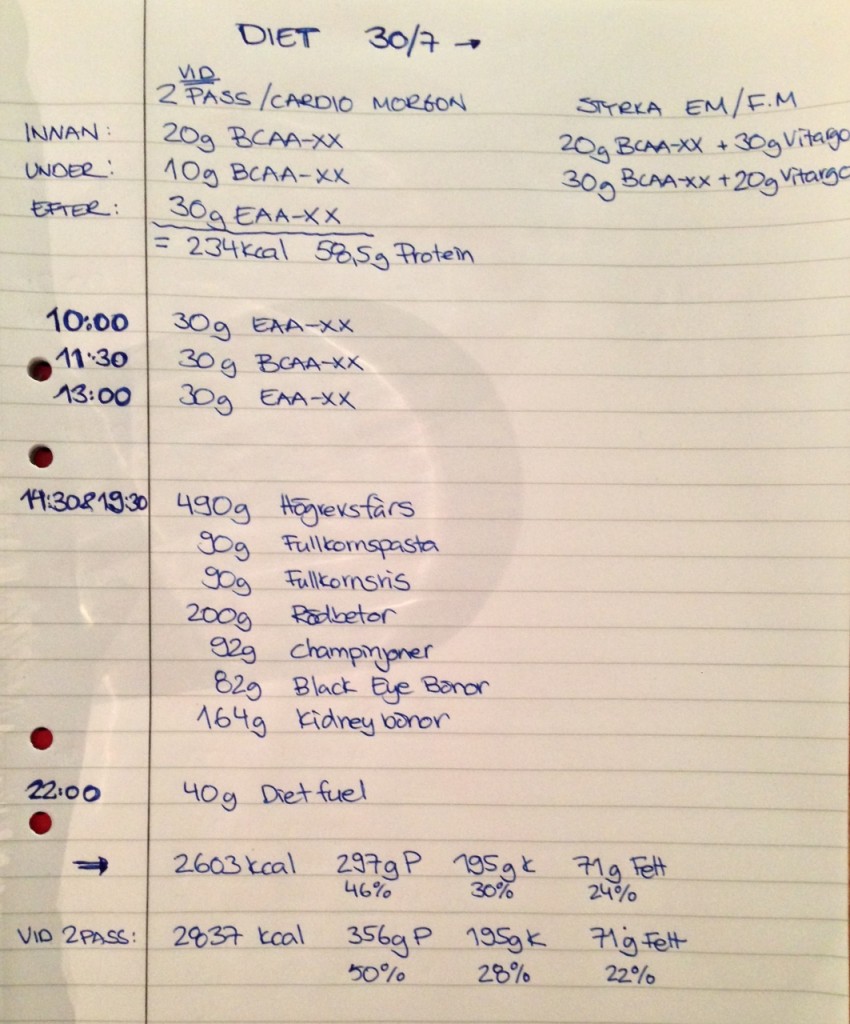 DIET 30/7 →
VID
2 PASS/CARDIO MORGON STYRKA EM/F.M
INNAN: 20g BCAA-XX 20g BCAA-XX + 30g Vitargo
UNDER: 10g BCAA-XX 30g BCAA-XX + 20g Vitargo
EFTER: 30g EAA-XX
= 234kcal 58,5g Protein
10:00 30g EAA-XX
11:30 30g BCAA-XX
13:00 30g EAA-XX
14:30&19:30 490g Högrevsfärs
90g Fullkornspasta
90g Fullkornsris
200g Rödbetor
92g Champinjoner
82g Black Eye Bönor
164g Kidney bönor
22:00 40g Diet fuel
→ 2603 kcal 297g P 195g K 71g Fett
46% 30% 24%
VID 2PASS: 2837 kcal 356g P 195g K 71g Fett
50% 28% 22%